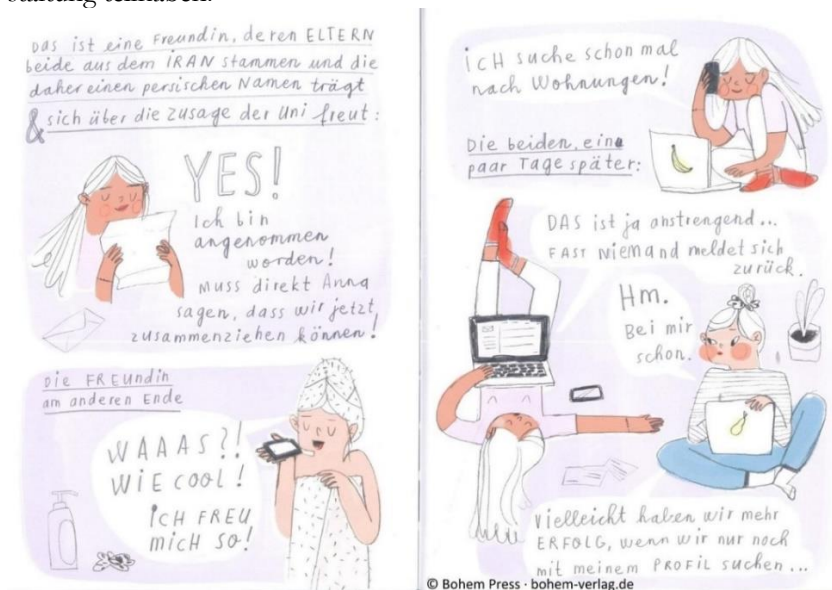 staltung teilhaben.
Das ist eine Freundin, deren ELTERN
beide aus dem IRAN stammen und die
daher einen persischen Namen trägt
& sich über die Zusage der Uni freut:
YES!
Ich bin
angenommen
worden!
Muss direkt Anna
sagen, dass wir jetzt
zusammenziehen können!
Die FREUndin
am anderen Ende
WAAAS?!
WIE COOL!
ICH FREU
MICH SO!
ICH suche schon mal
nach Wohnungen!
Die beiden, ein
paar Tage später:
DAS ist ja anstrengend...
FAST NIEMAND meldet sich
zurück.
Hm.
Bei mir
schon.
Vielleicht haben wir mehr
ERFOLG, wenn wir nur noch
mit meinem PROFIL suchen...
© Bohem Press · bohem-verlag.de